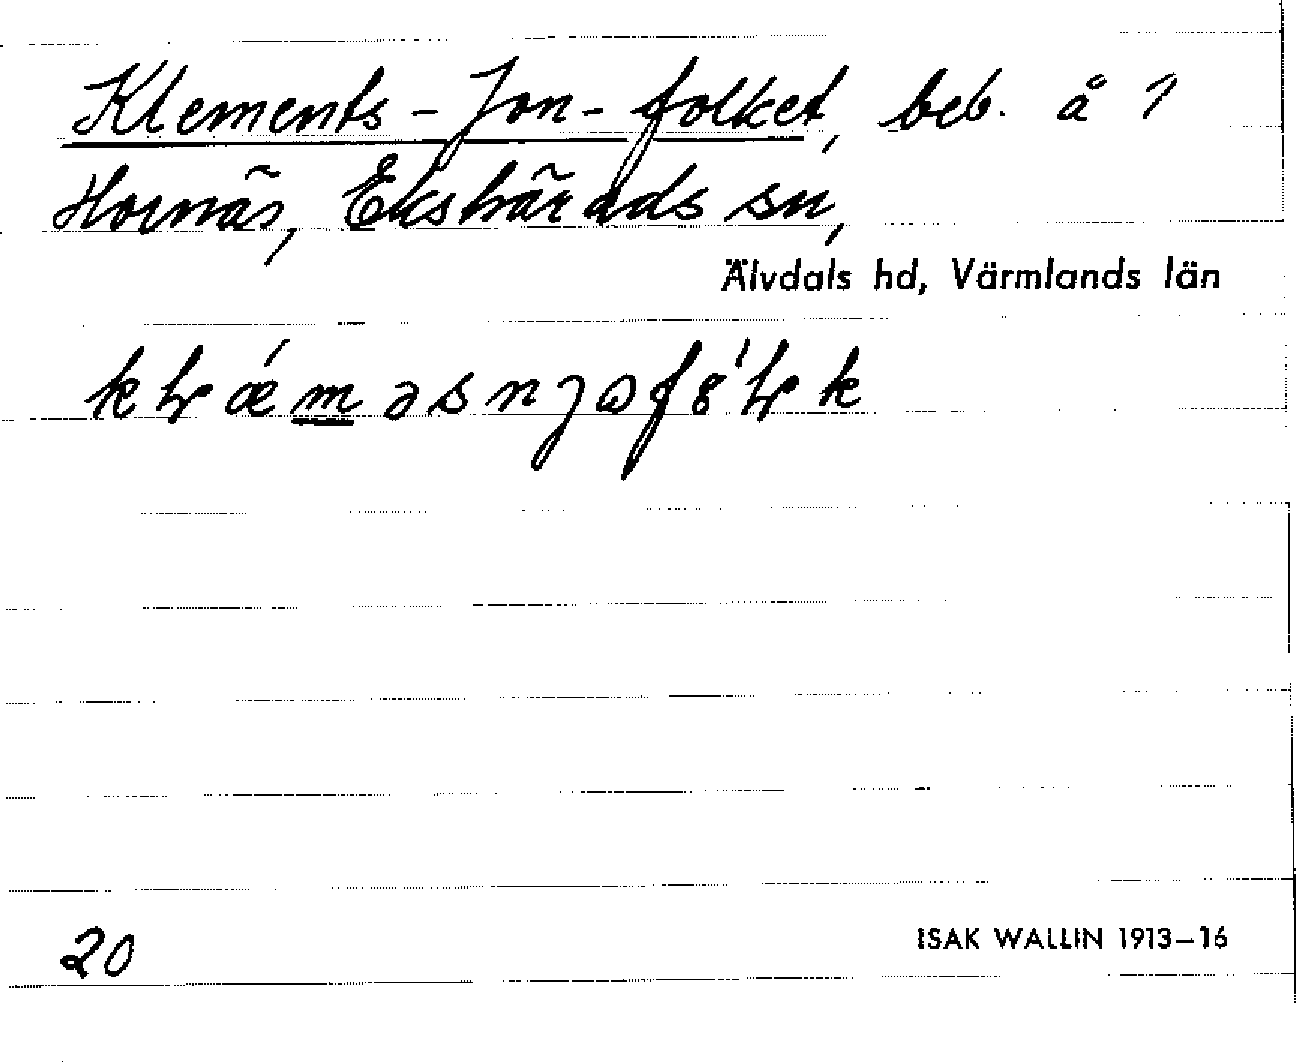 Klements-Jon-folket, beb. å ?
Hornäs, Ekshärads sn,
Älvdals hd, Värmlands län
20
ISAK WALLIN 1913–16